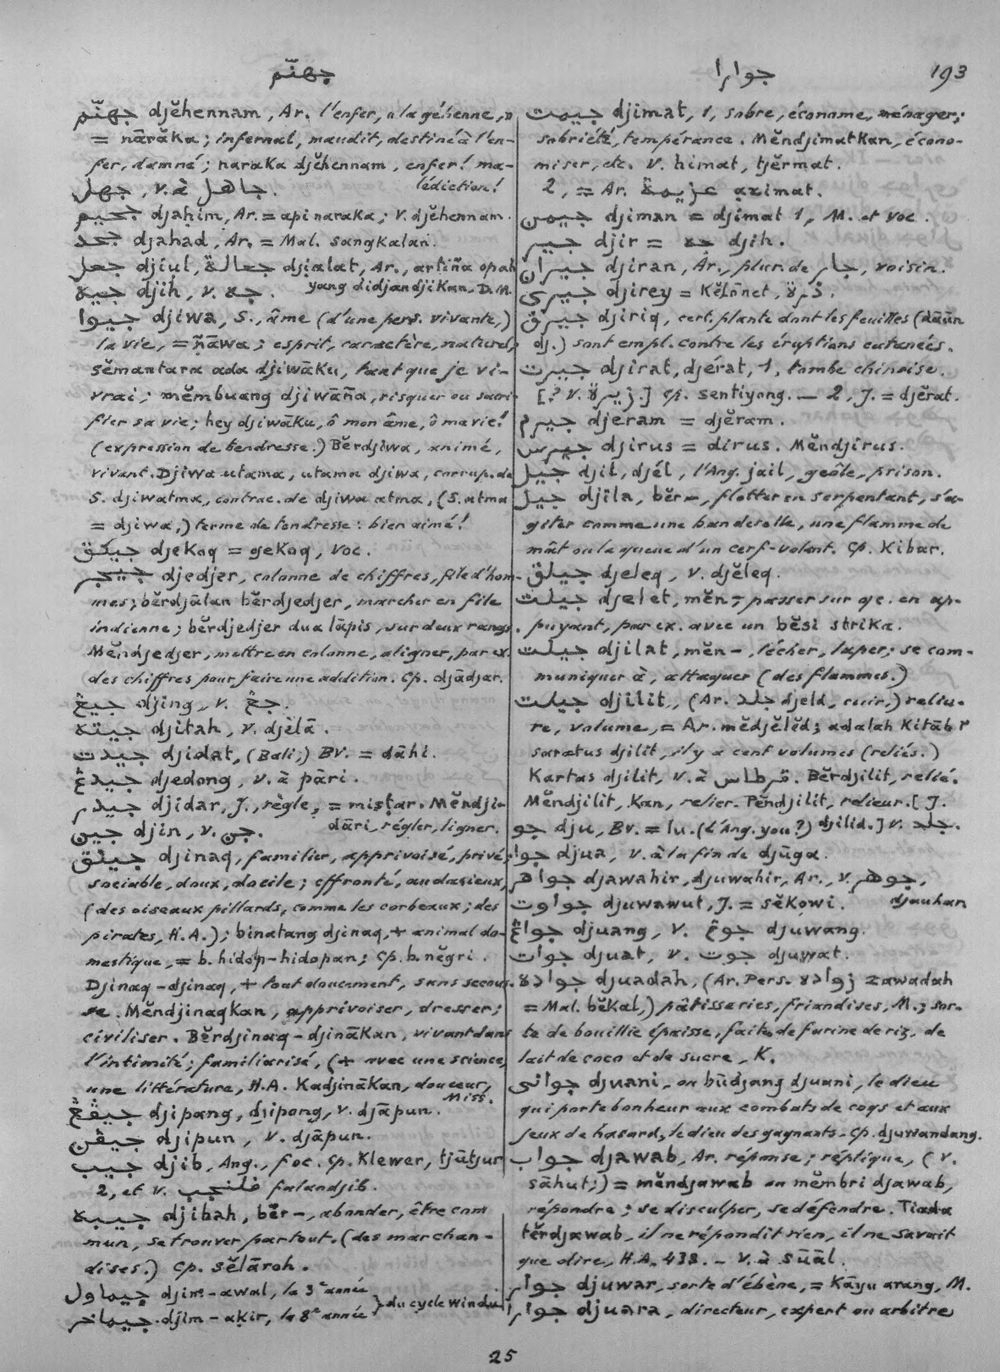 جهنّم
جوارا
193
جهنّم djĕhennam, Ar. l'enfer, la géhenne,
= nārăka; infernal, maudit, destiné à l'en-
fer, damné; naraka djĕhennam, enfer! ma-
lédiction!
جهل, v. à جاهل.
جحيم djaḥim, Ar. = api naraka; v. djĕhennam.
جحد djaḥad, Ar. = Mal. sangkalan.
جعل djiul, جعالة djialat, Ar., artiña opah
yang didjandjikan, D.M.
جيه djih, v. جه.
جيوا djiwa, S., âme (d'une pers. vivante,)
la vie, = ñāwa; esprit, caractère, naturel;
sĕmantara ada djiwāku, tant que je vi-
vrai; mĕmbuang djiwāña, risquer ou sacri-
fier sa vie; hey djiwāku, ô mon âme, ô ma vie!
(expression de tendresse.) Bĕrdjiwa, animé,
vivant. Djiwa utama, utama djiwa, corrup. de
S. djiwatma, contrac. de djiwa atma, (S. atma
= djiwa,) terme de tendresse: bien aimé!
جيكق djekoq = gekoq, voc.
جيجر djedjer, colonne de chiffres, file d'hom-
mes; bĕrdjālan bĕrdjedjer, marcher en file
indienne; bĕrdjedjer dua lāpis, sur deux rangs.
Mĕndjedjer, mettre en colonne, aligner, par ex.
des chiffres pour faire une addition. Cp. djādjar.
جيڠ djing, v. جڠ.
جيته djitah, v. djĕlā.
جيدت djidat, (Bali;) BV. = dāhi.
جيدڠ djedong, v. à pāri.
جيدر djidar, J., règle, = misṭar. Mĕndji-
dāri, régler, ligner.
جين djin, v. جن.
جينق djinaq, familier, apprivoisé, privé,
sociable, doux, docile; effronté, audacieux,
(des oiseaux pillards, comme les corbeaux; des
pirates, H.A.); binatang djinaq, + animal do-
mestique, = b. hidop-hidopan; cp. b. nĕgri.
Djinaq-djinaq, + tout doucement, sans secous-
se. Mĕndjinaqkan, apprivoiser, dresser;
civiliser. Bĕrdjinaq-djinākan, vivant dans
l'intimité; familiarisé, (+ avec une science,
une littérature, H.A. Kadjinākan, douceur,
Miss.
جيڤڠ djipang, djipong, v. djāpun.
جيڤن djipun, v. djāpun.
جيب djib, Ang., foc. Cp. Klewer, tjūtjur
2, et v. فلنجب falandjib.
جيبه djibah, bĕr-, abonder, être com
mun, se trouver partout. (des marchan-
dises.) Cp. sĕlāroh.
جيماول djim-awal, la 3e année
جيماخر djim-aḳir, la 8e année } du cycle windu
جيمت djimat, 1, sobre, économe, ménager;
sobriété, tempérance. Mĕndjimatkan, écono-
miser, etc. V. himat, tjĕrmat.
2, = Ar. عزيمة azimat.
جيمن djiman = djimat 1, M. et voc.
جير djir = جه djih.
جيران djiran, Ar., plur. de جار, voisin.
جيرى djirey = Kĕlānet,
جيرق djiriq, cert. plante dont les feuilles (dāun
dj.) sont empl. contre les éruptions cutanées.
جيرت djirat, djérat, 1, tombe chinoise.
[? v. زيرة.] Cp. sentiyong. — 2, J. = djĕrat.
جيرم djeram = djĕram.
جيرس djirus = dirus. Mĕndjirus.
جيل djil, djél, l'Ang. jail, geôle, prison.
جيل djila, bĕr-, flotter en serpentant, s'a-
giter comme une banderolle, une flamme de
mât ou la queue d'un cerf-volant. Cp. Kibar.
جيلق djeleq, v. djĕleq.
جيلت djelet, mĕn-, passer sur qc. en ap-
puyant, par ex. avec un bĕsi strika.
جيلت djilat, mĕn-, lécher, laper; se com-
muniquer à, attaquer (des flammes.)
جيلت djilit, (Ar. جلد djeld, cuir,) reliu-
re, volume, = Ar. mĕdjĕlĕd; adalah Kitāb
saratus djilit, il y a cent volumes (reliés.)
Kartas djilit, v. à قرطاس. Bĕrdjilit, relié.
Mĕndjilit, Kan, relier. Pĕndjilit, relieur. [J.
djilid.] v. جلد.
جو dju, BV. = lu. (L'Ang. you?)
جوا djua, v. à la fin de djūga.
جواهر djawahir, djuwahir, Ar., v. جوهر,
djauhar
جواوت djuwawut, J. = sĕkowi.
جواڠ djuang, v. جوڠ djuwang.
جوات djuat, v. جوت djuwat.
جواده djuadah, (Ar. Pers. زواده zawadah
= Mal. bĕkal,) pâtisseries, friandises, M.; sor-
te de bouillie épaisse, faite de farine de riz, de
lait de coco et de sucre, K.
جوانى djuani, ou būdjang djuani, le dieu
qui porte bonheur aux combats de coqs et aux
jeux de hasard, le dieu des gagnants. Cp. djuwandang.
جواب djawab, Ar. réponse; réplique, (v.
sāhut;) = mĕndjawab ou mĕmbri djawab,
répondre; se disculper, se défendre. Tiada
tĕrdjawab, il ne répondit rien, il ne savait
que dire, H.A. 438. — V. à sūāl.
جوار djuwar, sorte d'ébène, = Kāyu arang, M.
جوارا djuara, directeur, expert ou arbitre
25